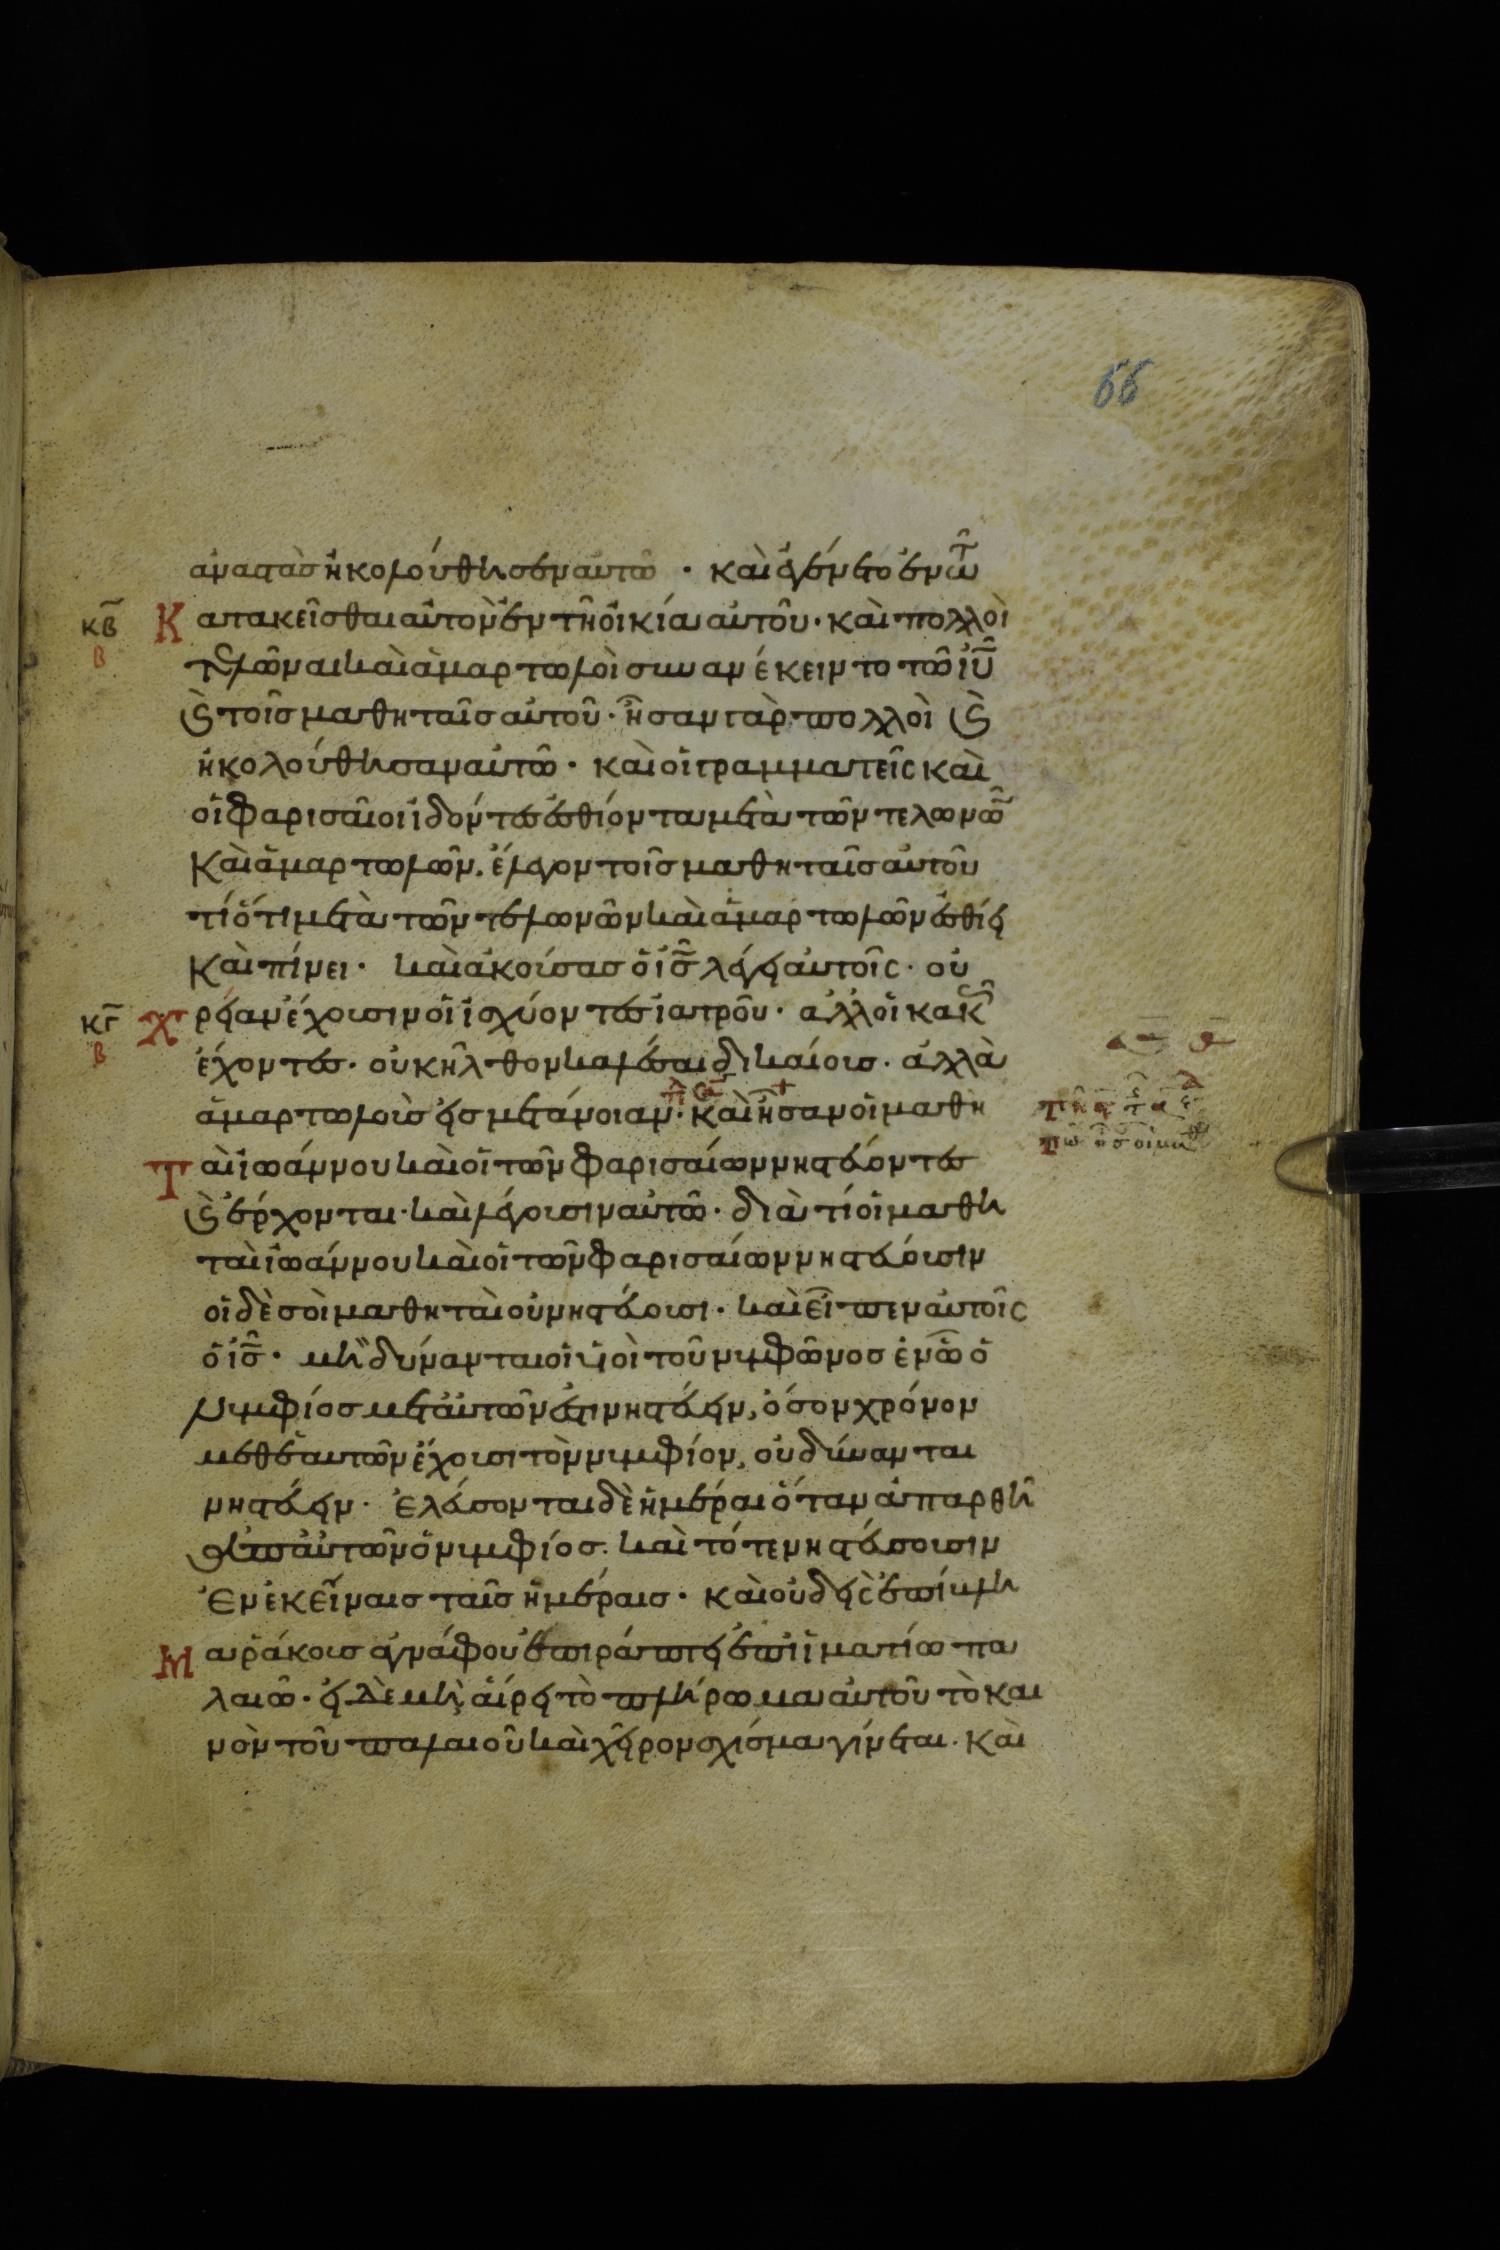 66
ἀναστὰς ἠκολούθησεν αὐτῶ · καὶ ἐγένετο ἐν τῶ
κβ Κατακεῖσθαι αὐτὸν ἐν τῆ οἰκία αὐτοῦ · καὶ πολλοὶ
β τελῶναι καὶ ἁμαρτωλοὶ συνανέκειντο τῶ ιυ
καὶ τοῖς μαθηταῖς αὐτοῦ · ἦσαν γὰρ πολλοὶ καὶ
ἠκολούθησαν αὐτῶ · καὶ οἱ γραμματεῖς καὶ
οἱ φαρισαῖοι ἰδόντες ἐσθίοντα μετὰ τῶν τελωνῶ
καὶ ἁμαρτωλῶν, ἔλεγον τοῖς μαθηταῖς αὐτοῦ
τί ὅτι μετὰ τῶν τελωνῶν καὶ ἁμαρτωλῶν ἐσθίει
καὶ πίνει · καὶ ἀκούσας ὁ ις λέγει αὐτοῖς · οὐ
κγ Χρείαν ἔχουσιν οἱ ἰσχύοντες ἰατροῦ · ἀλλ οἱ κακ
β ἔχοντες · οὐκ ἦλθον καλέσαι δικαίους · ἀλλὰ
ἁμαρτωλοὺς εἰς μετάνοιαν · καὶ ἦσαν οἱ μαθη
Ταὶ ἰωάννου καὶ οἱ τῶν φαρισαίων νηστεύοντες
καὶ ἔρχονται · καὶ λέγουσιν αὐτῶ · διὰ τί οἱ μαθη
ταὶ ἰωάννου καὶ οἱ τῶν φαρισαίων νηστεύουσιν
οἱ δὲ σοὶ μαθηταὶ οὐ νηστεύουσι · καὶ εἶπεν αὐτοῖς
ὁ ις · μὴ δύνανται οἱ υἱοὶ τοῦ νυμφῶνος ἐν ῶ ὁ
νυμφίος μετ αὐτῶν ἐστι νηστεύειν, ὅσον χρόνον
μεθ ἑαυτῶν ἔχουσι τὸν νυμφίον, οὐ δύνανται
νηστεύειν · Ἐλεύσονται δὲ ἡμέραι ὅταν ἀπαρθῆ
ἀπ αὐτῶν ὁ νυμφίος · καὶ τότε νηστεύσουσιν
Ἐν ἐκείναις ταῖς ἡμέραις · καὶ οὐδεὶς ἐπίβλη
Μα ῥάκους ἀγνάφου ἐπιράπτει ἐπὶ ἱματίω πα
λαιῶ · εἰ δὲ μὴ, αἴρει τὸ πλήρωμα αὐτοῦ τὸ και
νὸν τοῦ παλαιοῦ καὶ χεῖρον σχίσμα γίνεται · Καὶ